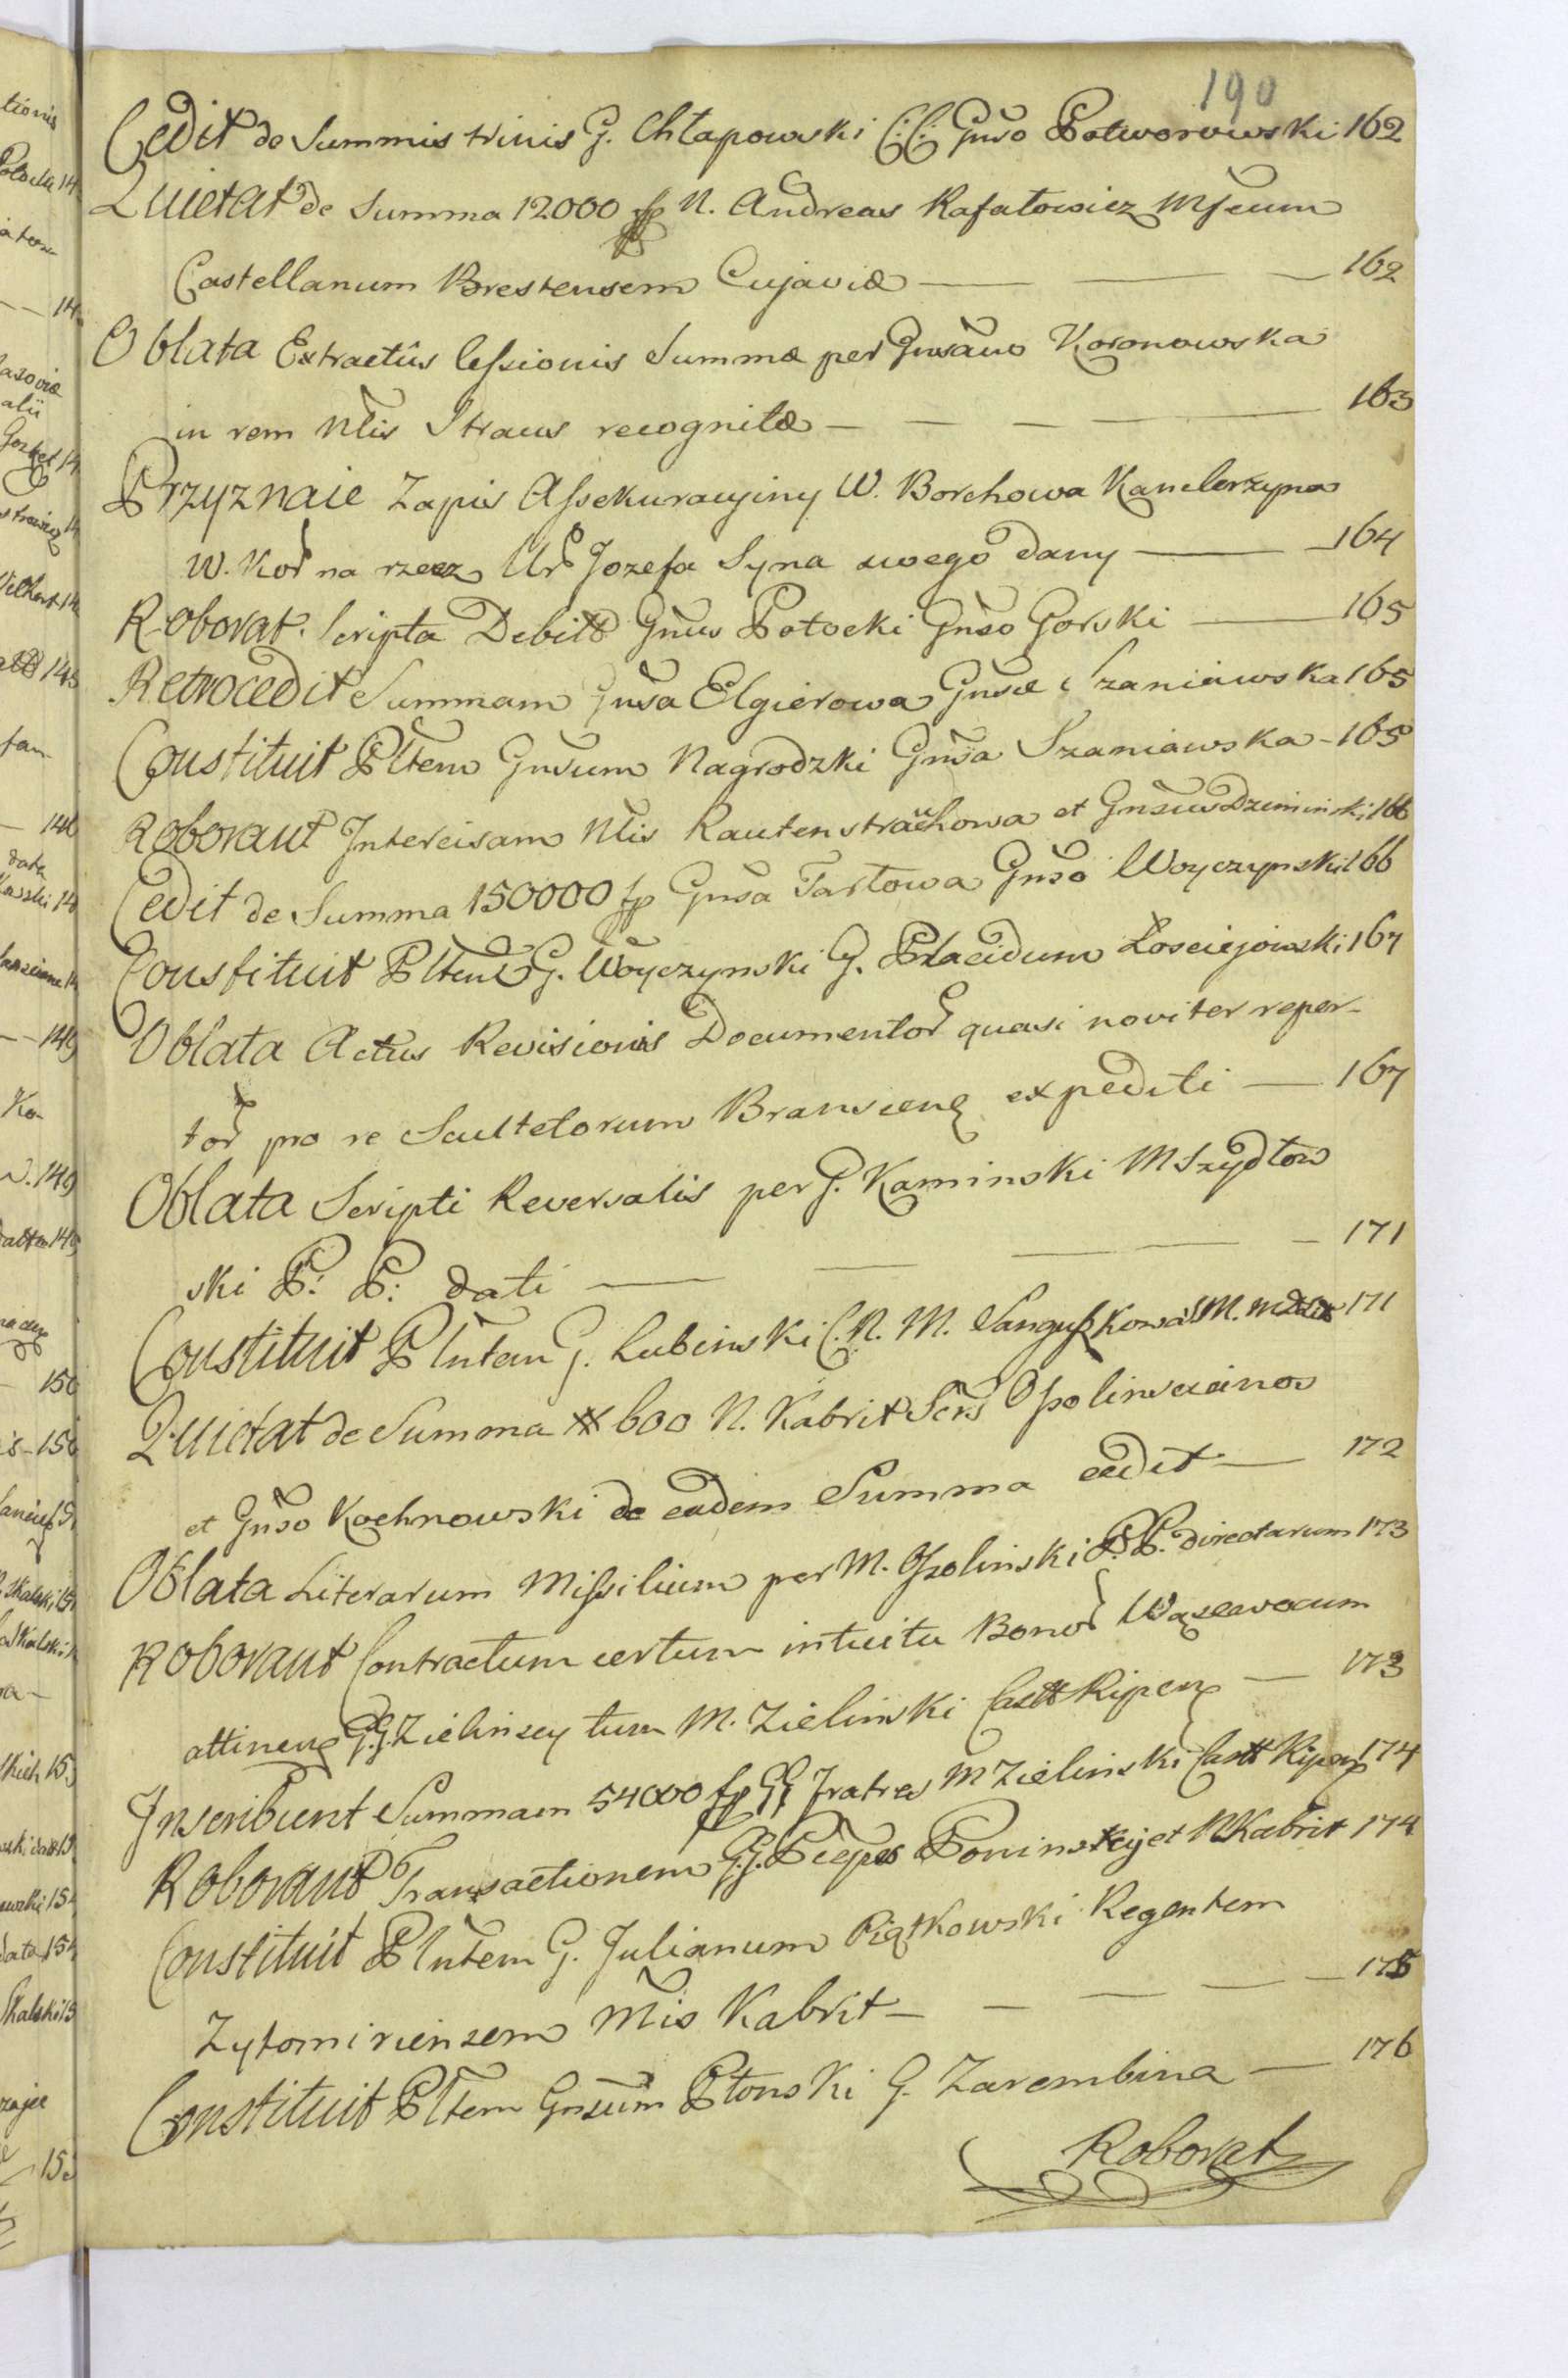 190
Cedit de Summis trinis G. Chłapowski C. C. Gnso Potworowski 162
Quietat de Summa 12000 fp N. Andreas Rafałowicz Mfcum
Castellanum Brestensem Cujaviæ — 162
Oblata Extractûs Cessionis Summæ per Gnsam Koronowska
in rem Nlis Straus recognitæ — 163
Przyznaie Zapis Assekuracyiny W. Borchowa Kanclerzyna
W. Kor na rzecz Ur Jozefa Syna swego dany — 164
Roborat Scripta Debiti Gnus Potocki Gnso Gorski — 165
Retrocedit Summam Gnsa Elgierowa Gnsæ Szaniawska 165
Constituit Pltem Gnsum Nagrodzki Gnsa Szaniawska - 165
Roborant Intercisam Nlis Rautenstrauchowa et Gnsus Dziminski 166
Cedit de Summa 150000 fp Gnsa Tarłowa Gnso Woyczynski 166
Constituit Pltem G. Woyczynski G. Placidum Łosciejowski 167
Oblata Actus Revisionis Documentor quasi noviter reper-
tor pro re Scultetorum Branscens expediti — 167
Oblata Scripti Reversalis per G. Kaminski M Szydłow
ski P: P: dati — 171
Constituit Plntem G. Lubinski C. N. M. Sanguszkowa 171
Quietat de Summa # 600 N. Kabrit Scrs Opolinscianos
et Gnso Kochnowski de eadem Summa cedit — 172
Oblata Literarum Missilium per M. Ossolinski P. P. directarum 173
Roborant Contractum certum intuitu Bonor
attinens G.G. Zielinscy tum M. Zielinski Castt Ripens — 173
Inscribunt Summam 54000 fp GG Fratres M Zielinski Castt Ripens 174
Roborant Transactionem G.G. Pcipes Poninskij et N Kabrit 174
Constituit Plntem G. Julianum Piątkowski Regentem
Zytomiriensem Mis Kabrit — 175
Constituit Pltem Gnsum Płonski G. Zarembina — 176
Roborat